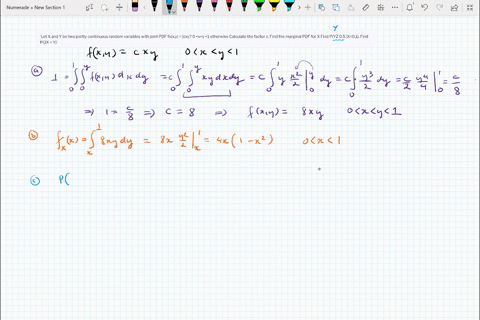 Numerade » New Section 1
Y
Let X and Y be two jointly continuous random variables with joint PDF
otherwise Calculate the factor c. Find the marginal PDF for X Find
Find
f(x,y) = cxy    0<x<y<1
(a) 1 = ∫₀¹∫₀^y f(x,y) dx dy = c ∫₀¹∫₀^y xy dx dy = c ∫₀¹ y x²/2 |₀^y dy = c ∫₀¹ y³/2 dy = c/2 y⁴/4 |₀¹ = c/8
⇒ 1 = c/8 ⇒ c = 8 ⇒ f(x,y) = 8xy    0<x<y<1
(b) f_X(x) = ∫ₓ¹ 8xy dy = 8x y²/2 |ₓ¹ = 4x(1-x²)    0<x<1
(c) P(